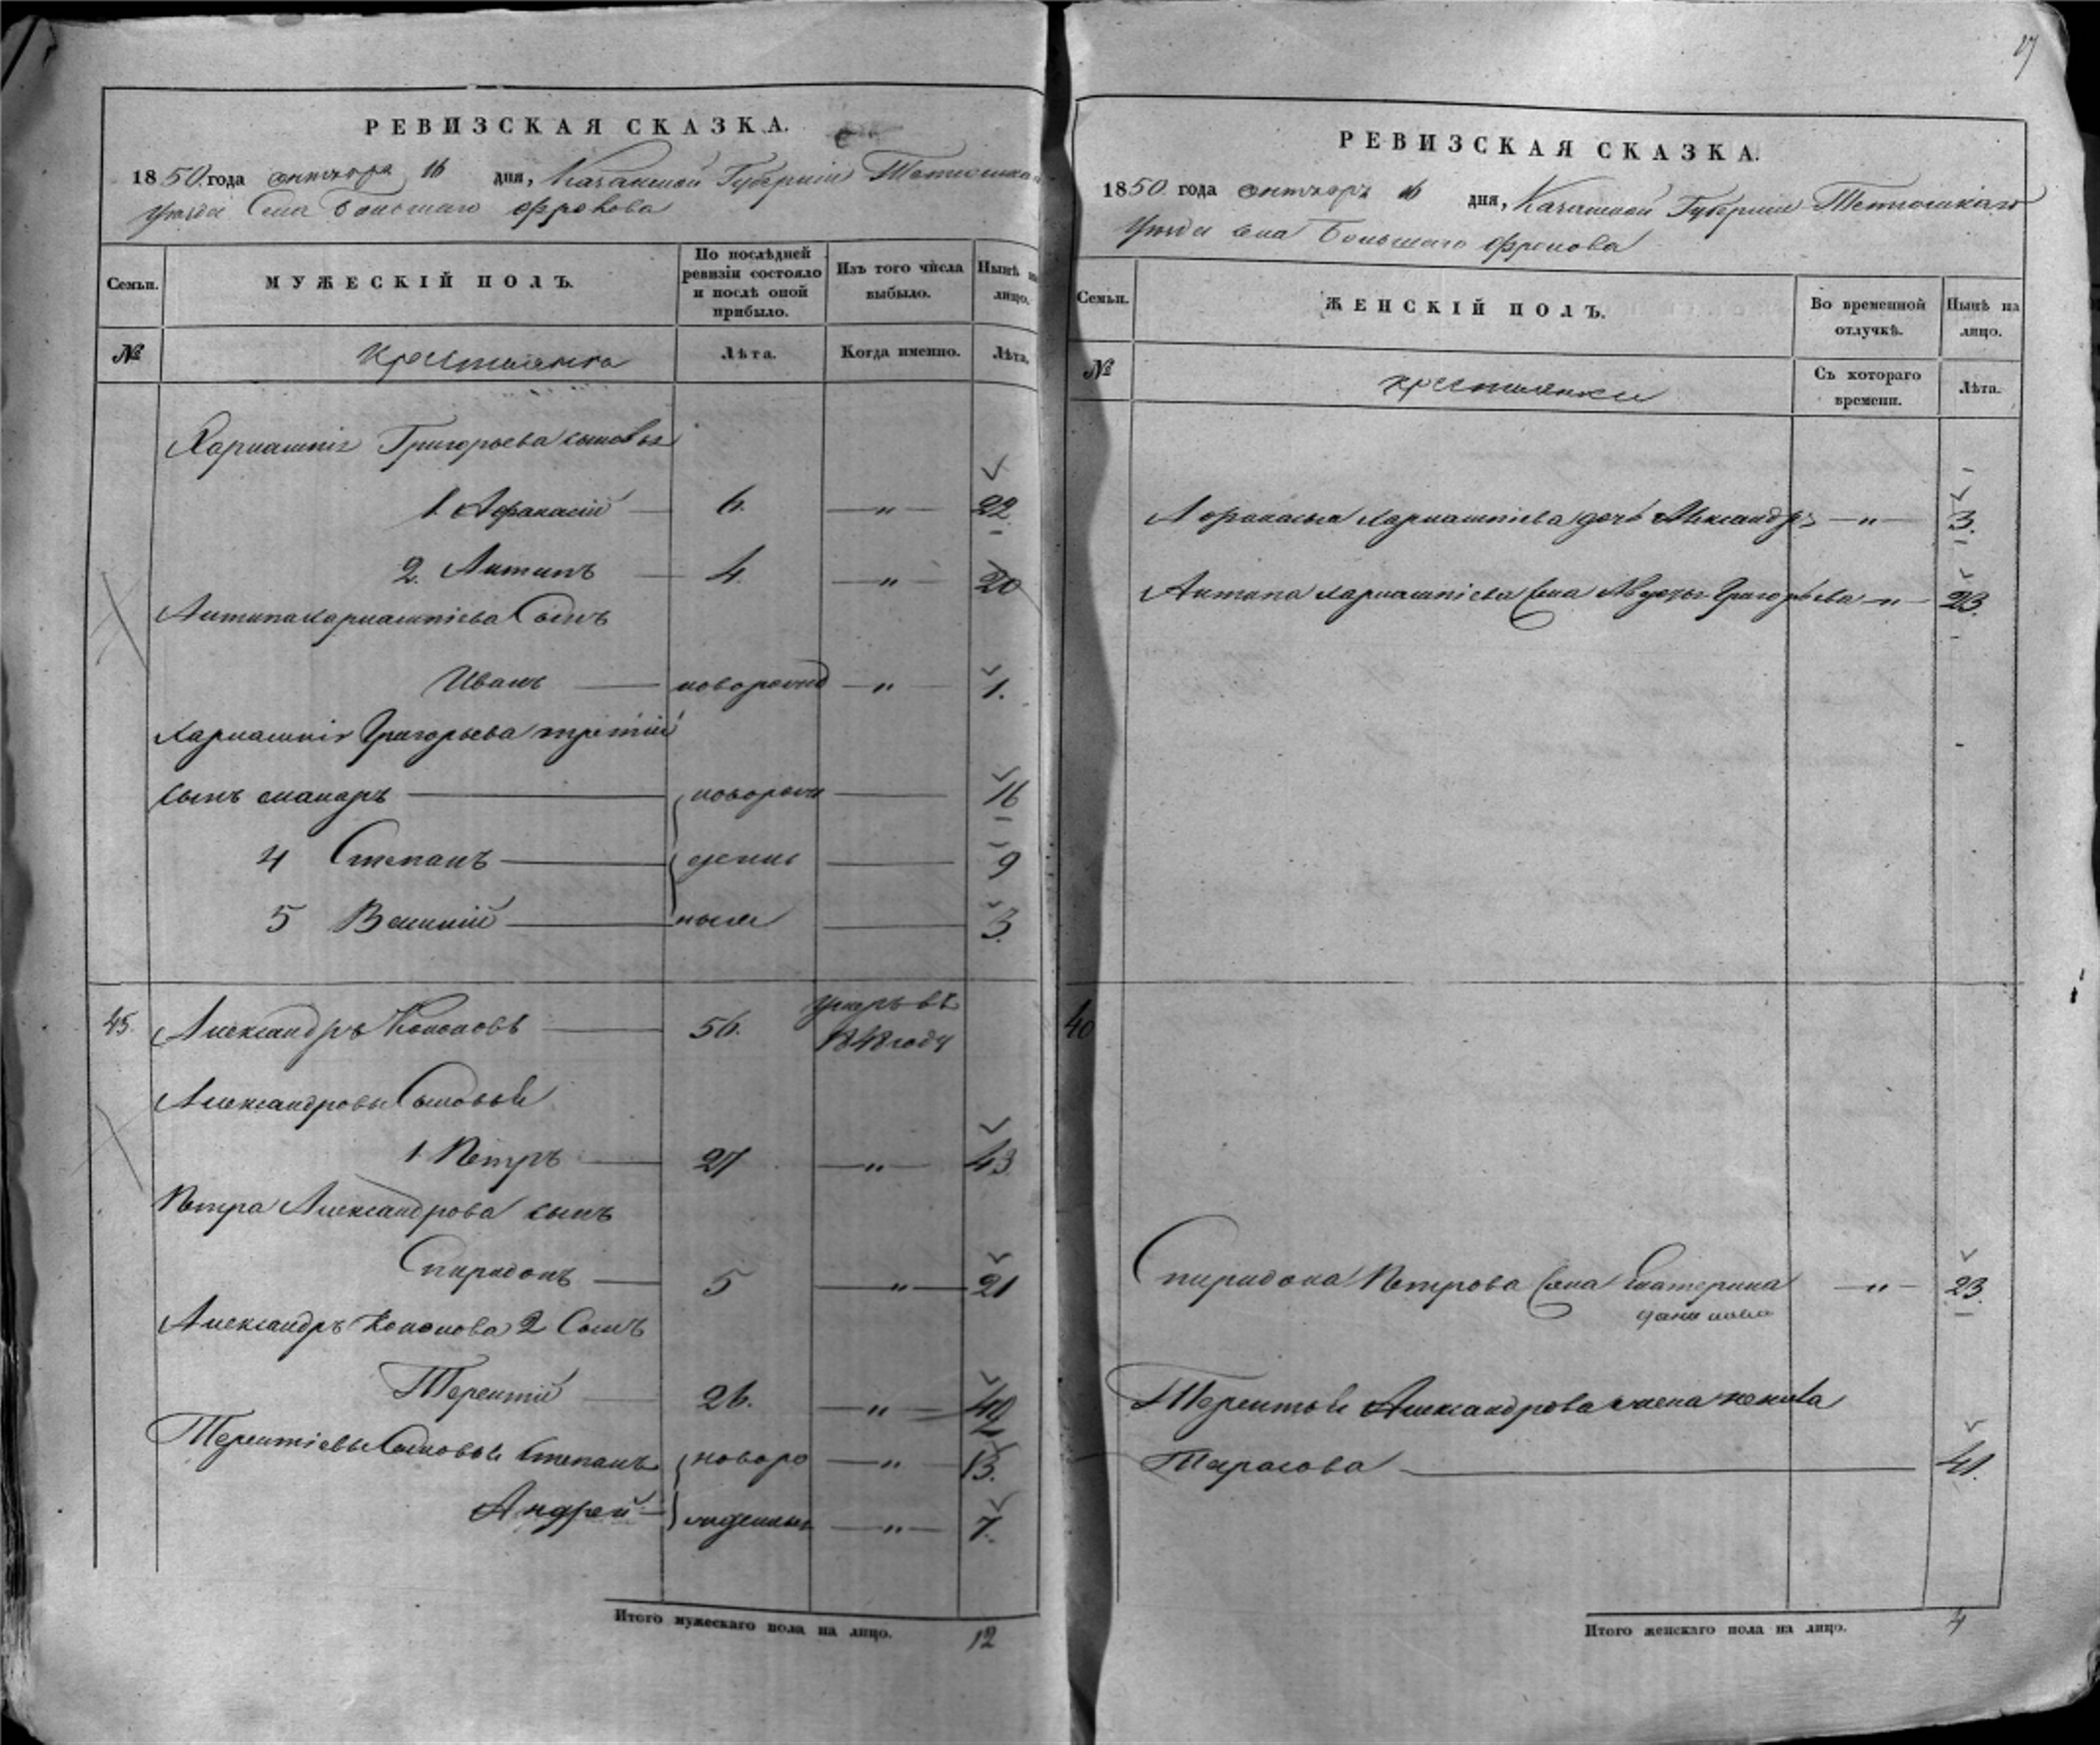 17
РЕВИЗСКАЯ СКАЗКА.
1850 года октября 16 дня, Казанской Губернии Тетюшскаго
уезда села Большаго Фролова
Семьи.
МУЖЕСКІЙ ПОЛЪ.
По послѣдней ревизіи состояло и послѣ оной прибыло.
Изъ того числа выбыло.
Нынѣ на лицо.
№
Лѣта.
Когда именно.
Лѣта.
Григорьева сыновья
1. Афанасій — 6. — " — 22.
2. Антипъ — 4. — " — 20
Антипа сынъ
Иванъ — новорожд — " — 1.
Григорьева третій
сынъ макаръ — новорож — 16
4 Степанъ — денны — 9
5 Василий — 3.
45. Александръ Кононовъ — 56. умеръ въ 1848 году
Александровы Сыновья
1 Петръ — 27 — " — 43.
Петра Александрова сынъ
Спиридонъ — 5 — " — 21
Александръ Кононова 2 Сынъ
Терентій — 26. — " — 42
Терентіевы Сыновья Степанъ новоро — " — 13.
Андрей — " — 7.
Итого мужескаго пола на лицо. 12
РЕВИЗСКАЯ СКАЗКА.
1850 года октябрь 16 дня, Казанской Губернии Тетюшскаго
уезда села Большаго Фролова
Семьи.
ЖЕНСКІЙ ПОЛЪ.
Во временной отлучкѣ.
Нынѣ на лицо.
№
крестьянки
Съ котораго времени.
Лѣта.
Афанасья дочь Александр — " — 3.
Антипа Григорьева — " — 23.
Спиридона Петрова жена Екатерина — " — 23.
данилова
Терентья Александрова жена
Тарасова — 41.
Итого женскаго пола на лицо. 4